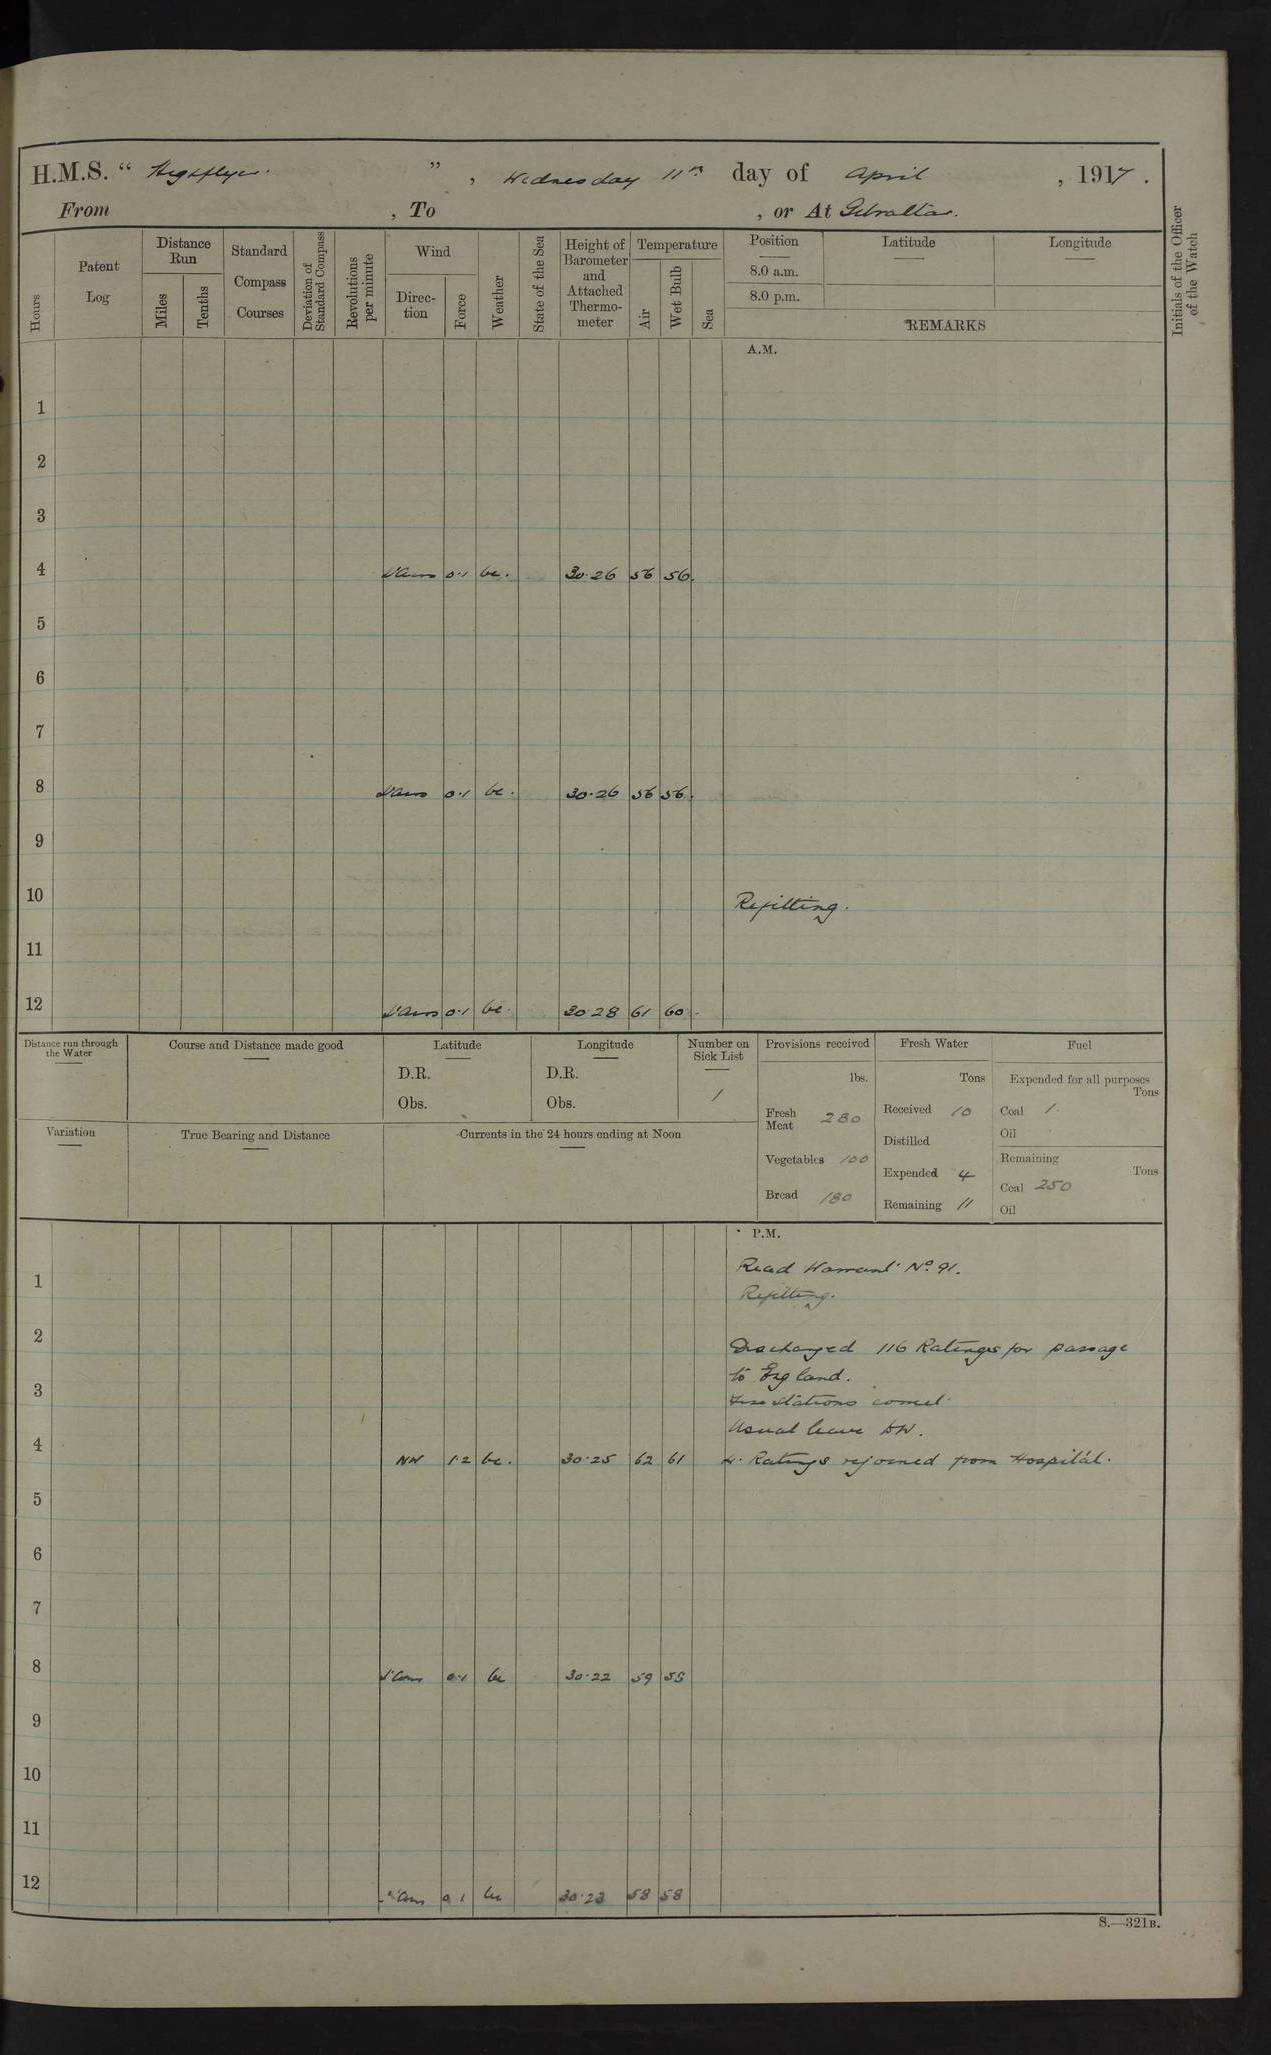 H.M.S. " Highflyer. " , Wednesday 11th day of April , 1917 .
From , To , or At Gibraltar.
Hours
Patent Log
Distance Run
Miles
Tenths
Standard Compass Courses
Deviation of Standard Compass
Revolutions per minute
Wind
Direc- tion
Force
Weather
State of the Sea
Height of Barometer and Attached Thermo- meter
Temperature
Air
Wet Bulb
Sea
Position
8.0 a.m.
8.0 p.m.
Latitude
Longitude
REMARKS
Initials of the Officer of the Watch
A.M.
1
2
3
4 L'airs 0.1 bc. 30.26 56 56.
5
6
7
8 L'airs 0.1 bc. 30.26 56 56.
9
10 Refitting.
11
12 L'airs 0.1 bc. 30.28 61 60.
Distance run through the Water
Course and Distance made good
Latitude
D.R.
Obs.
Longitude
D.R.
Obs.
Number on Sick List
1
Variation
True Bearing and Distance
Currents in the 24 hours ending at Noon
Provisions received
lbs.
Fresh Meat 280
Vegetables 100
Bread 180
Fresh Water
Tons
Received 10
Distilled
Expended 4
Remaining 11
Fuel
Expended for all purposes
Tons
Coal 1
Oil
Remaining
Tons
Coal 250
Oil
P.M.
Read Warrant No. 91.
1
Refitting.
2
Discharged 116 Ratings for passage
to England.
3
stations
Usual leave
4 NW 1.2 bc. 30.25 62 61 4. Ratings rejoined from Hospital.
5
6
7
8 L'airs 0.1 bc 30.22 59 58
9
10
11
12 L'airs 0.1 bc 30.23 58 58
S.—321B.